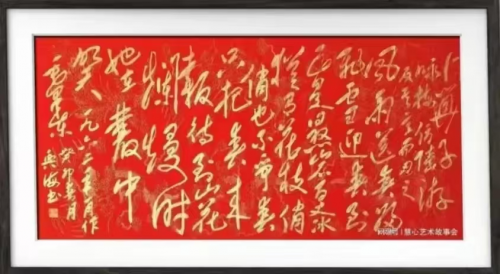 卜算子
咏梅
反其意而用之
风雨送春归
飞雪迎春到
已是悬崖百丈冰
犹有花枝俏
俏也不争春
只把春来
报待到山花
烂熳时
她在丛中
笑
毛泽东
癸卯春月
慧心艺术故事会